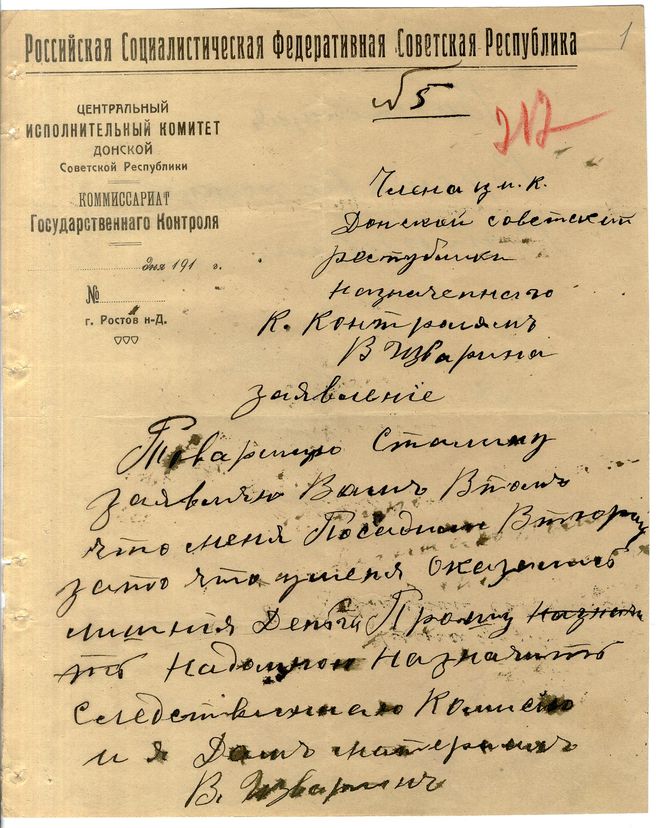 Российская Социалистическая Федеративная Советская Республика
1
№ 5
217
ЦЕНТРАЛЬНЫЙ
ИСПОЛНИТЕЛЬНЫЙ КОМИТЕТ
ДОНСКОЙ
Советской Республики
КОММИССАРИАТ
Государственнаго Контроля
дня 191 г.
№
г. Ростов н-Д.
Члена ц и. к.
Донской советский
республики
назначеннаго
К. Контролямъ
В Изварина
заявление
Товарищю Сталину
заявляю Вамъ Втомъ
что меня Посадили Втюрму
зато что уменя Оказались
лишния Деньги Прошу назнача
ть надомной назначить
следственною Комисию
и я Дамъ матерьялъ
В. Изваринъ